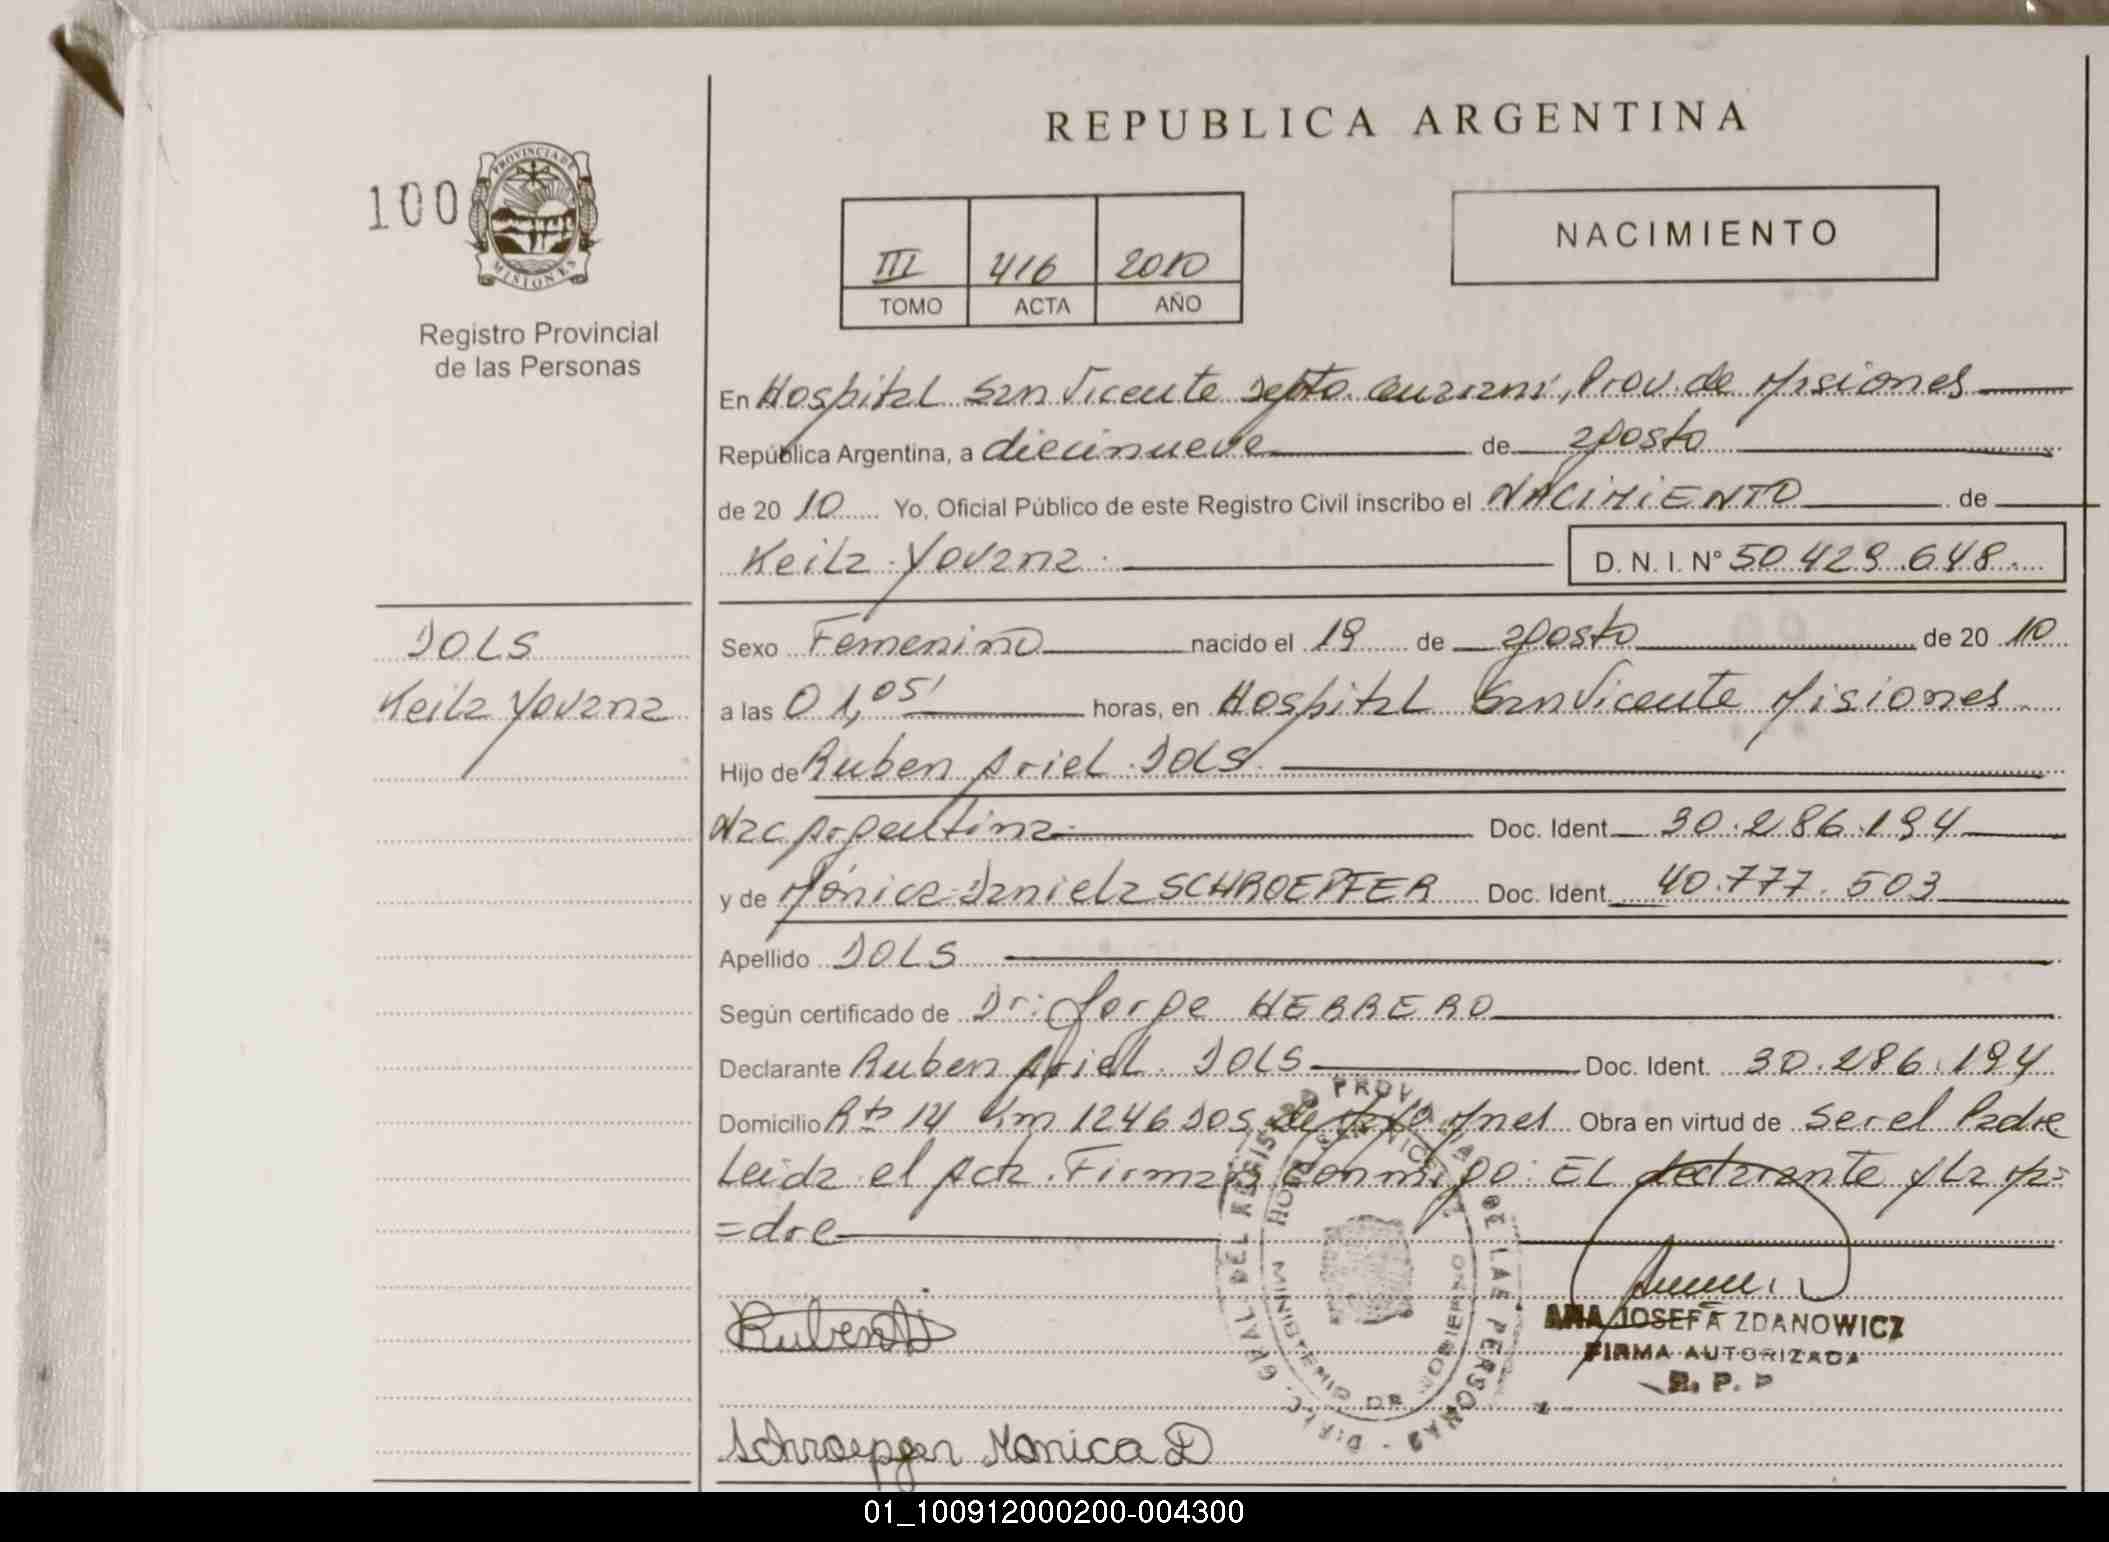 REPUBLICA ARGENTINA
100
PROVINCIA DE
MISIONES
Registro Provincial
de las Personas
III 416 2010
TOMO ACTA AÑO
NACIMIENTO
En Hospital San Vicente Depto. Guarani, Prov. de Misiones
República Argentina, a diecinueve de agosto
de 20 10 Yo, Oficial Público de este Registro Civil inscribo el NACIMIENTO de
Keila Yovana
D. N. I. N° 50.429.648
DOLS
Keila Yovana
Sexo Femenino nacido el 19 de agosto de 20 10
a las 01,05' horas, en Hospital San Vicente Misiones
Hijo de Ruben Ariel DOLS
Nac Argentina Doc. Ident. 30.286.194
y de Mónica Daniela SCHROEPFER Doc. Ident. 40.777.503
Apellido DOLS
Según certificado de Dr: Jorge HERRERO
Declarante Ruben Ariel DOLS Doc. Ident. 30.286.194
Domicilio Rta 14 Km 1246 Dos de Mayo Mnes Obra en virtud de Ser el Padre
Leida el Acta. Firman conmigo: EL declarante y La Ma=
=dre
Ruben D
Schroepfer Monica D
DIREC. GRAL DEL REGISTRO PROVINCIAL DE LAS PERSONAS
MINISTERIO DE GOBIERNO
ANA JOSEFA ZDANOWICZ
FIRMA AUTORIZADA
R. P. P
01_100912000200-004300